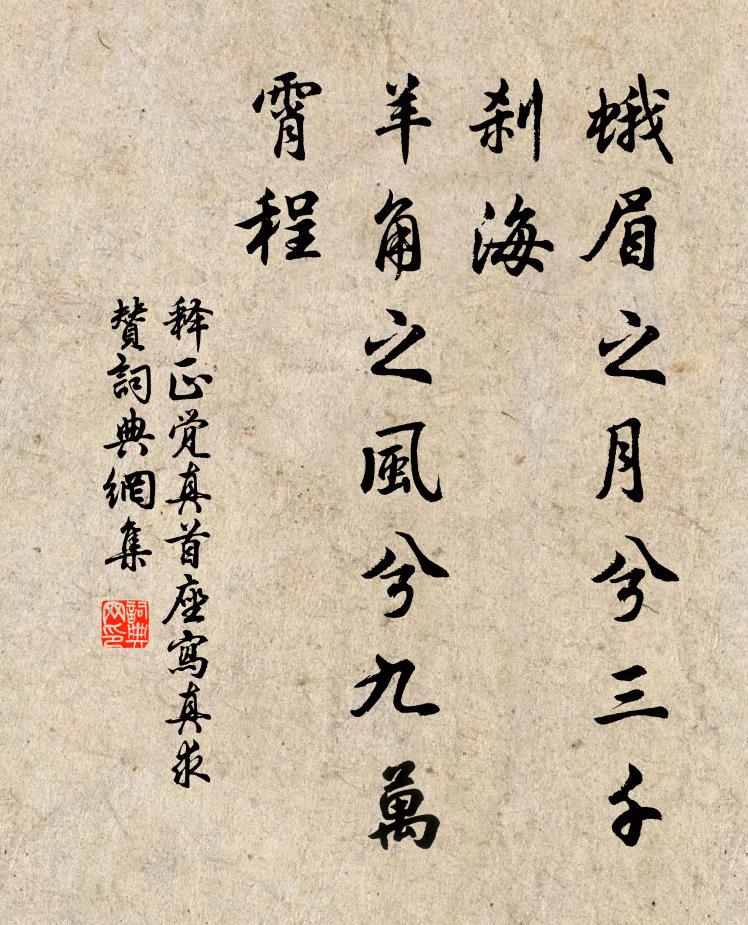 蛾眉之月兮三千
刹海
羊角之風兮九萬
霄程
释正觉真首座寫真求
贊詞典網集
詞典網印